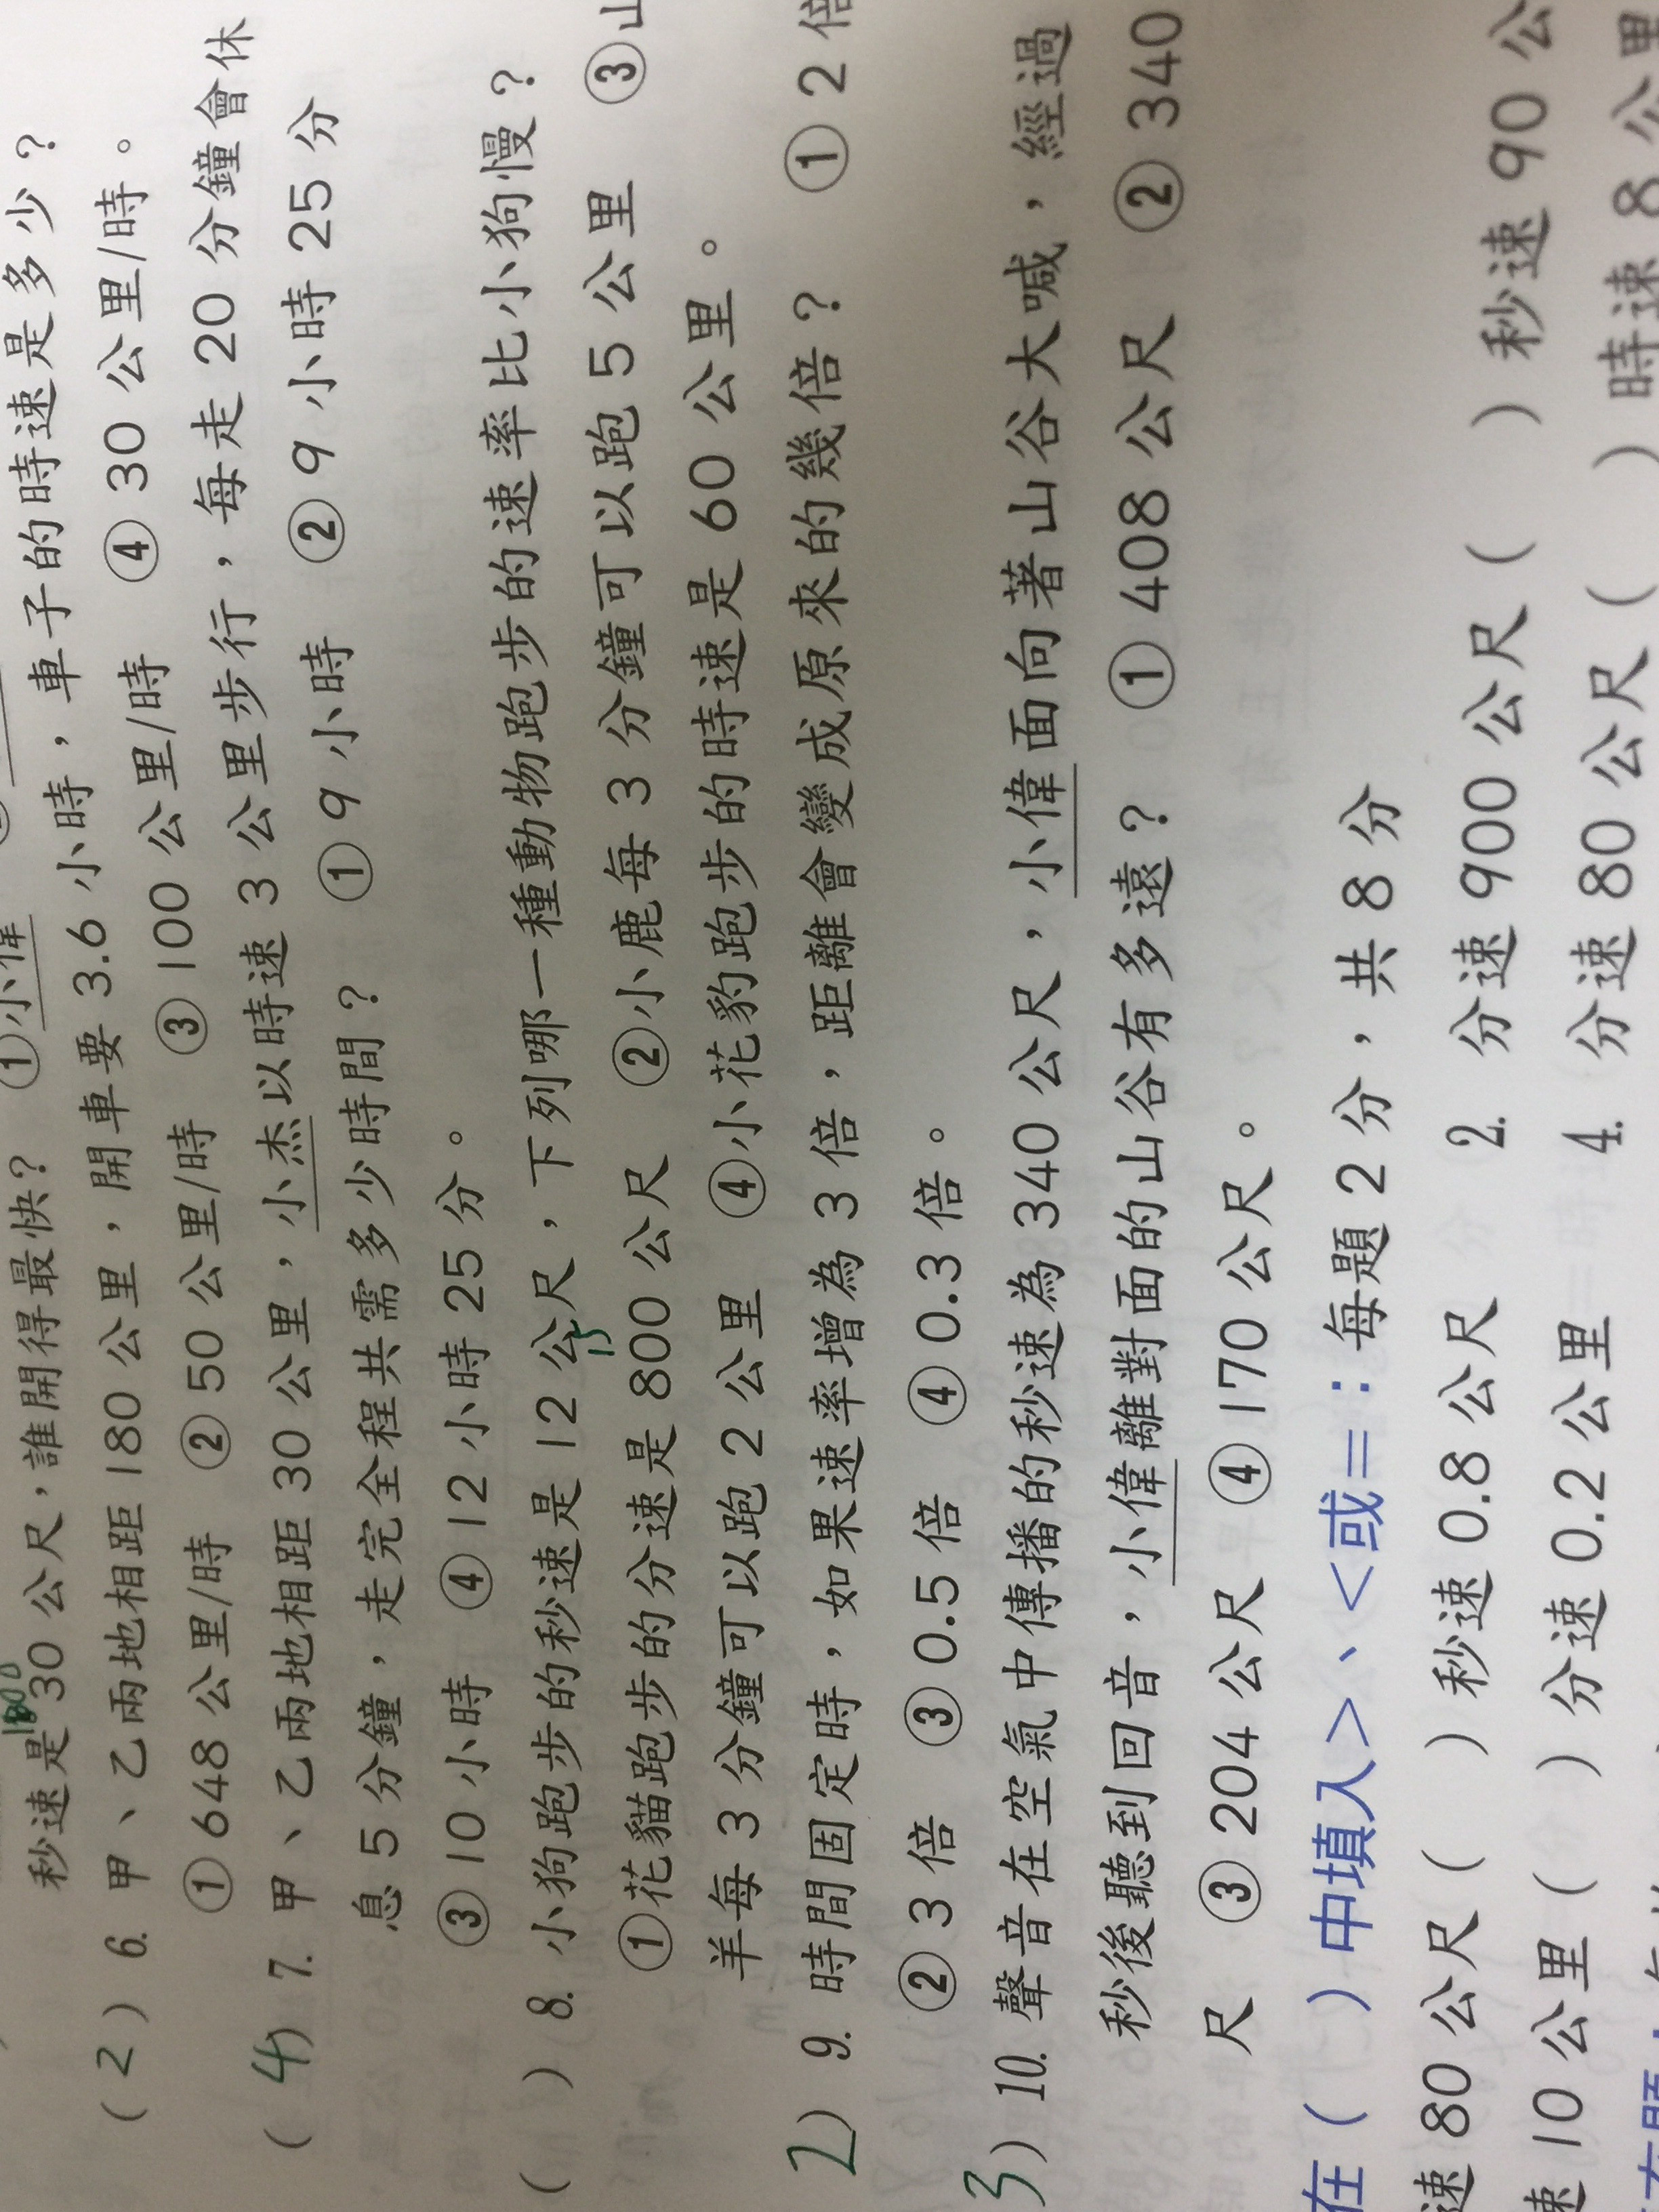 秒速是30公尺，誰開得最快？ ①小偉
1800
( 2 ) 6. 甲、乙兩地相距180公里，開車要3.6小時，車子的時速是多少？
①648公里/時 ②50公里/時 ③100公里/時 ④30公里/時。
( 4 ) 7. 甲、乙兩地相距30公里，小杰以時速3公里步行，每走20分鐘會休
息5分鐘，走完全程共需多少時間？ ①9小時 ②9小時25分
③10小時 ④12小時25分。
( ) 8. 小狗跑步的秒速是12公尺，下列哪一種動物跑步的速率比小狗慢？
①花貓跑步的分速是800公尺 ②小鹿每3分鐘可以跑5公里 ③山
羊每3分鐘可以跑2公里 ④小花豹跑步的時速是60公里。
2 ) 9. 時間固定時，如果速率增為3倍，距離會變成原來的幾倍？ ①2倍
②3倍 ③0.5倍 ④0.3倍。
3 ) 10. 聲音在空氣中傳播的秒速為340公尺，小偉面向著山谷大喊，經過
秒後聽到回音，小偉離對面的山谷有多遠？ ①408公尺 ②340
尺 ③204公尺 ④170公尺。
在( )中填入>、<或=：每題2分，共8分
速80公尺( )秒速0.8公尺 2. 分速900公尺( )秒速90公
速10公里( )分速0.2公里 4. 分速80公尺( )時速8公里